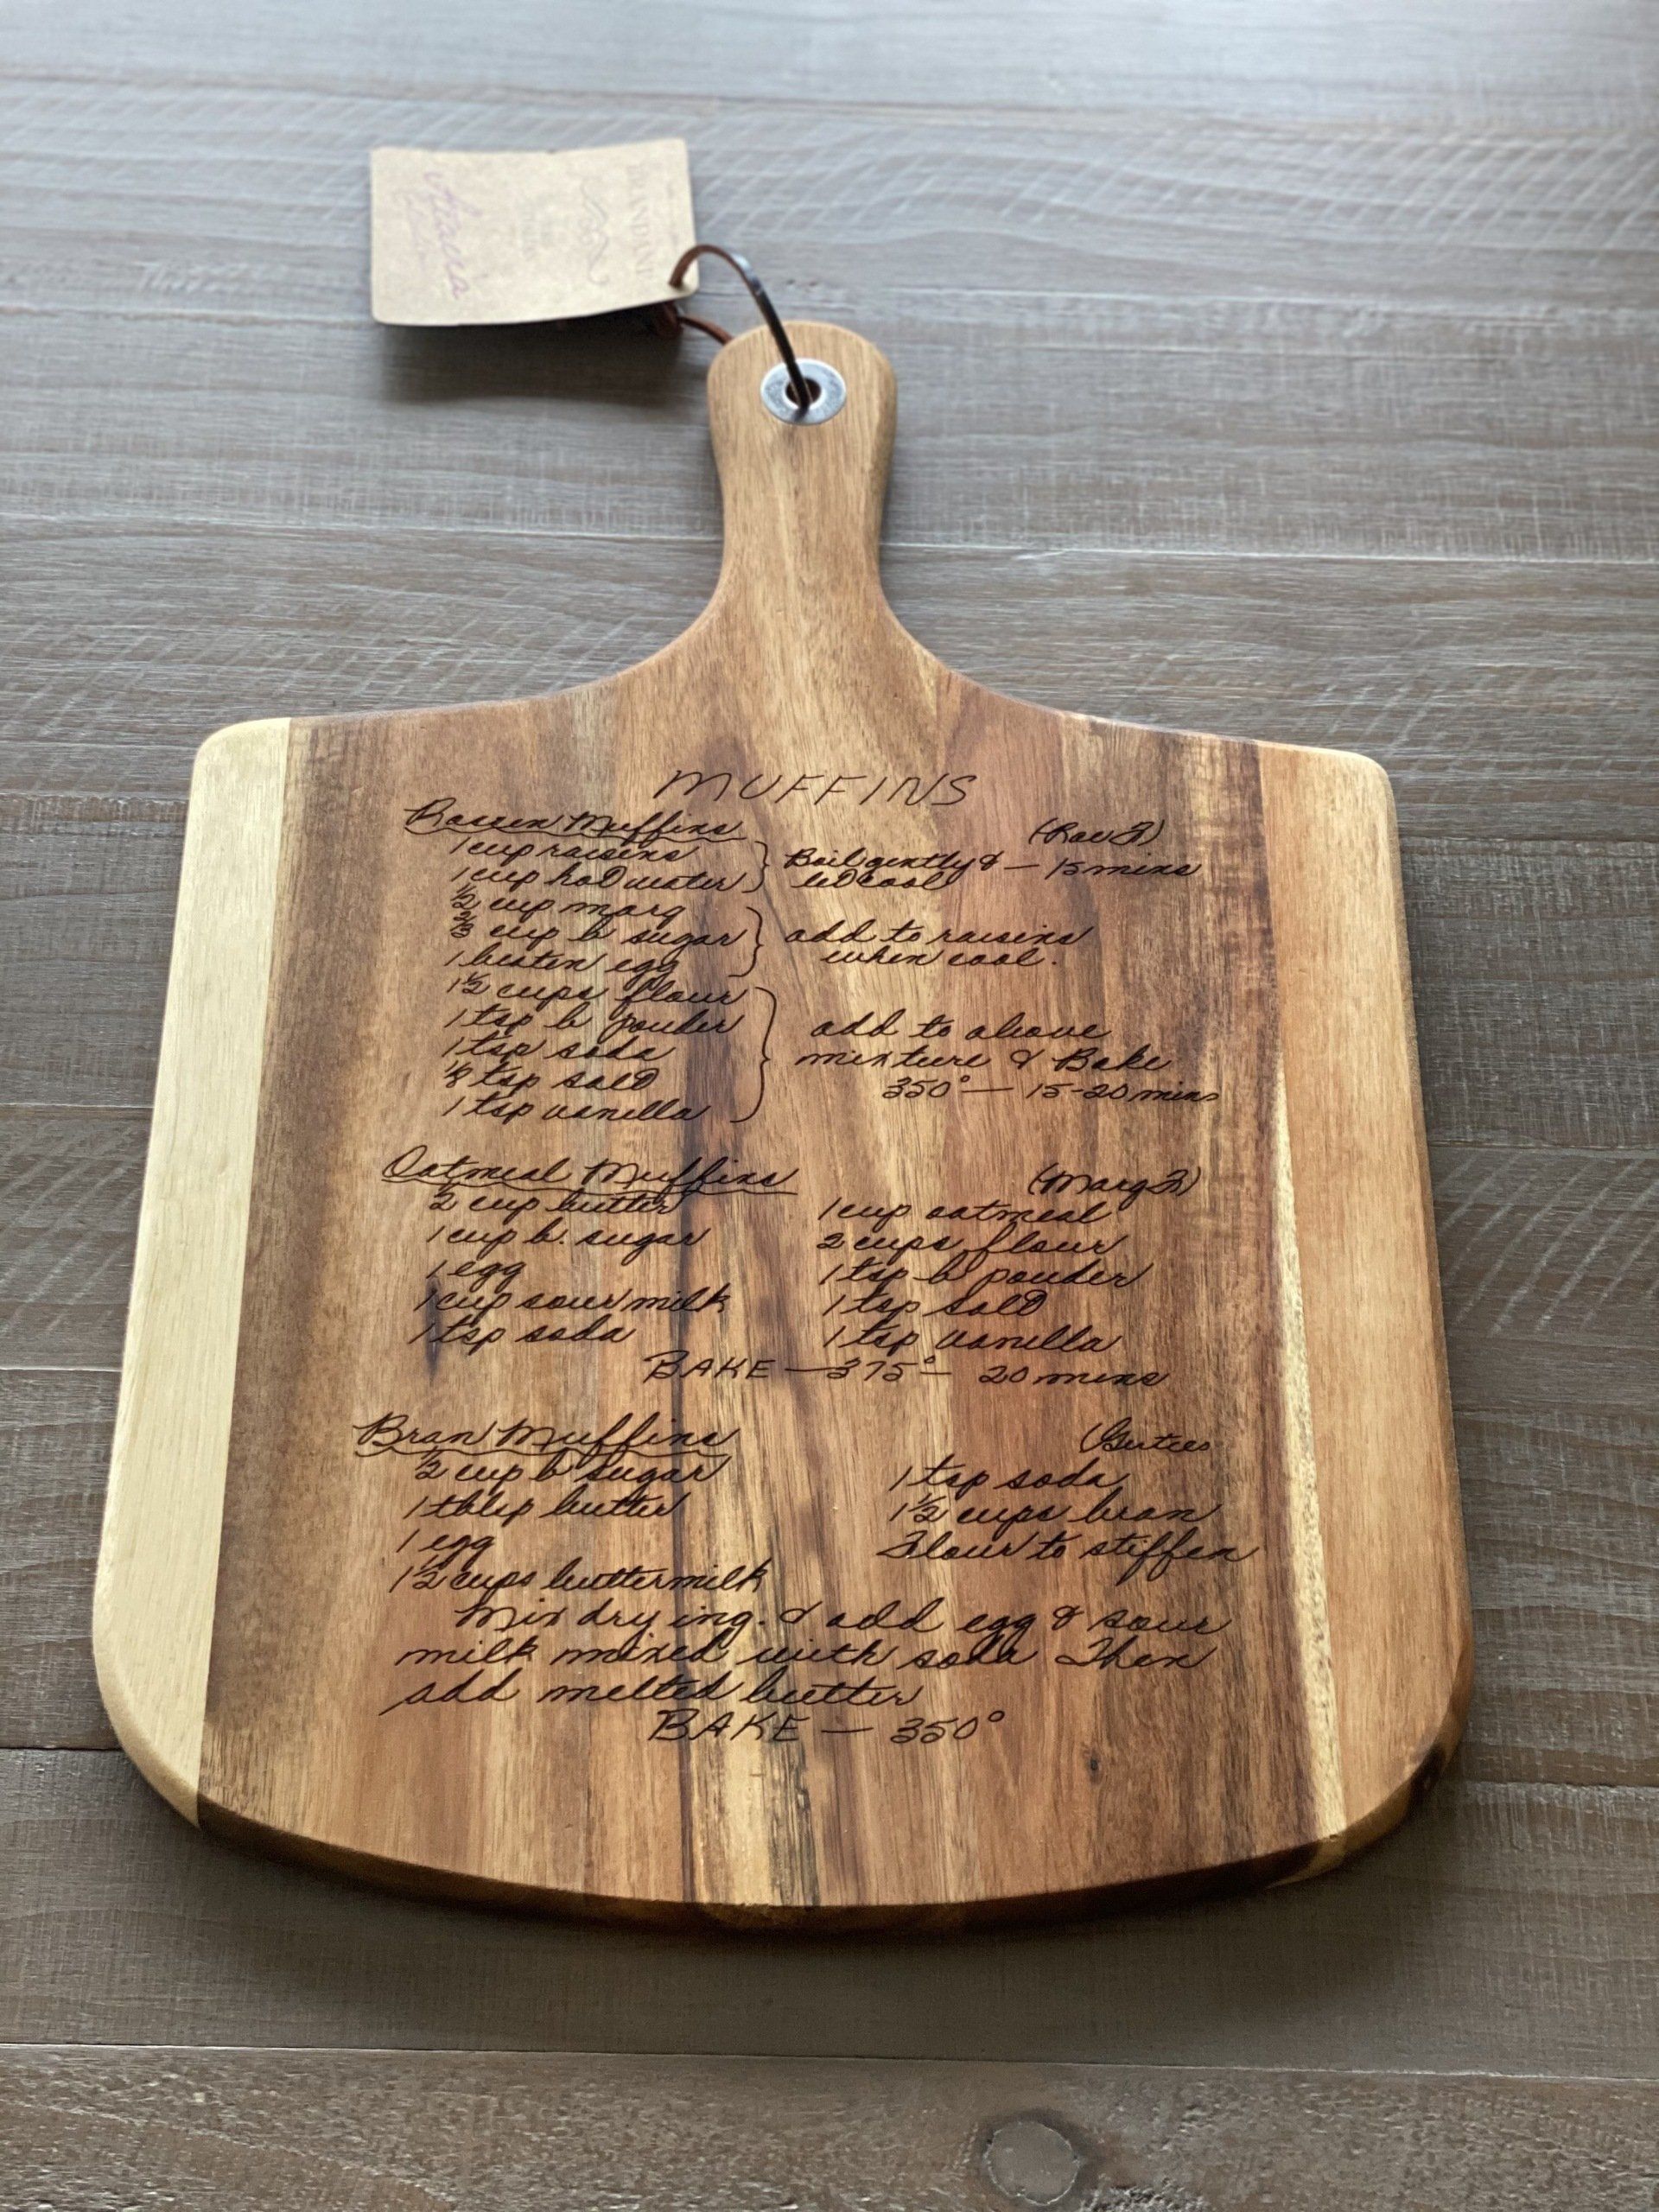 MUFFINS
Raisen Muffins (Rae F)
1 cup raisins } Boil gently & — 15 mins
1 cup hot water let cool
½ cup marg
⅔ cup b sugar } add to raisins
1 beaten egg when cool.
1½ cups flour
1 tsp b powder add to above
1 tsp soda } mixture & Bake
⅛ tsp salt 350° — 15-20 mins
1 tsp vanilla
Oatmeal Muffins (Marg F)
½ cup butter 1 cup oatmeal
1 cup b. sugar 2 cups flour
1 egg 1 tsp b powder
1 cup sour milk 1 tsp salt
1 tsp soda 1 tsp vanilla
BAKE — 375° — 20 mins
Bran Muffins (Gerties
½ cup b sugar 1 tsp soda
1 tblsp butter 1½ cups bran
1 egg Flour to stiffen
1½ cups buttermilk
Mix dry ing. & add egg & sour
milk mixed with soda Then
add melted butter
BAKE — 350°
acacia